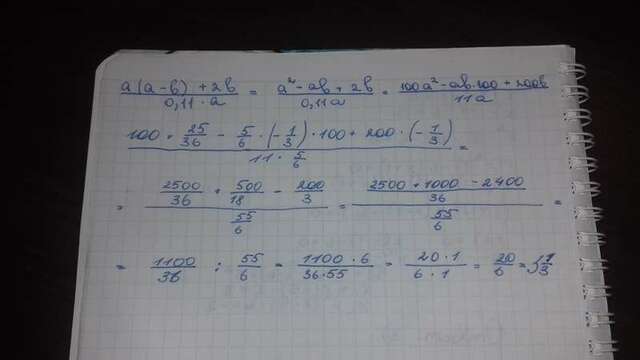 a(a-b)+2b / 0,11·a = a²-ab+2b / 0,11a = 100a²-ab·100+200b / 11a
100·25/36 - 5/6·(-1/3)·100+200·(-1/3) / 11·5/6 =
= 2500/36 + 500/18 - 200/3 / 55/6 = 2500+1000-2400 / 36 / 55/6 =
= 1100/36 : 55/6 = 1100·6 / 36·55 = 20·1 / 6·1 = 20/6 = 3 1/3